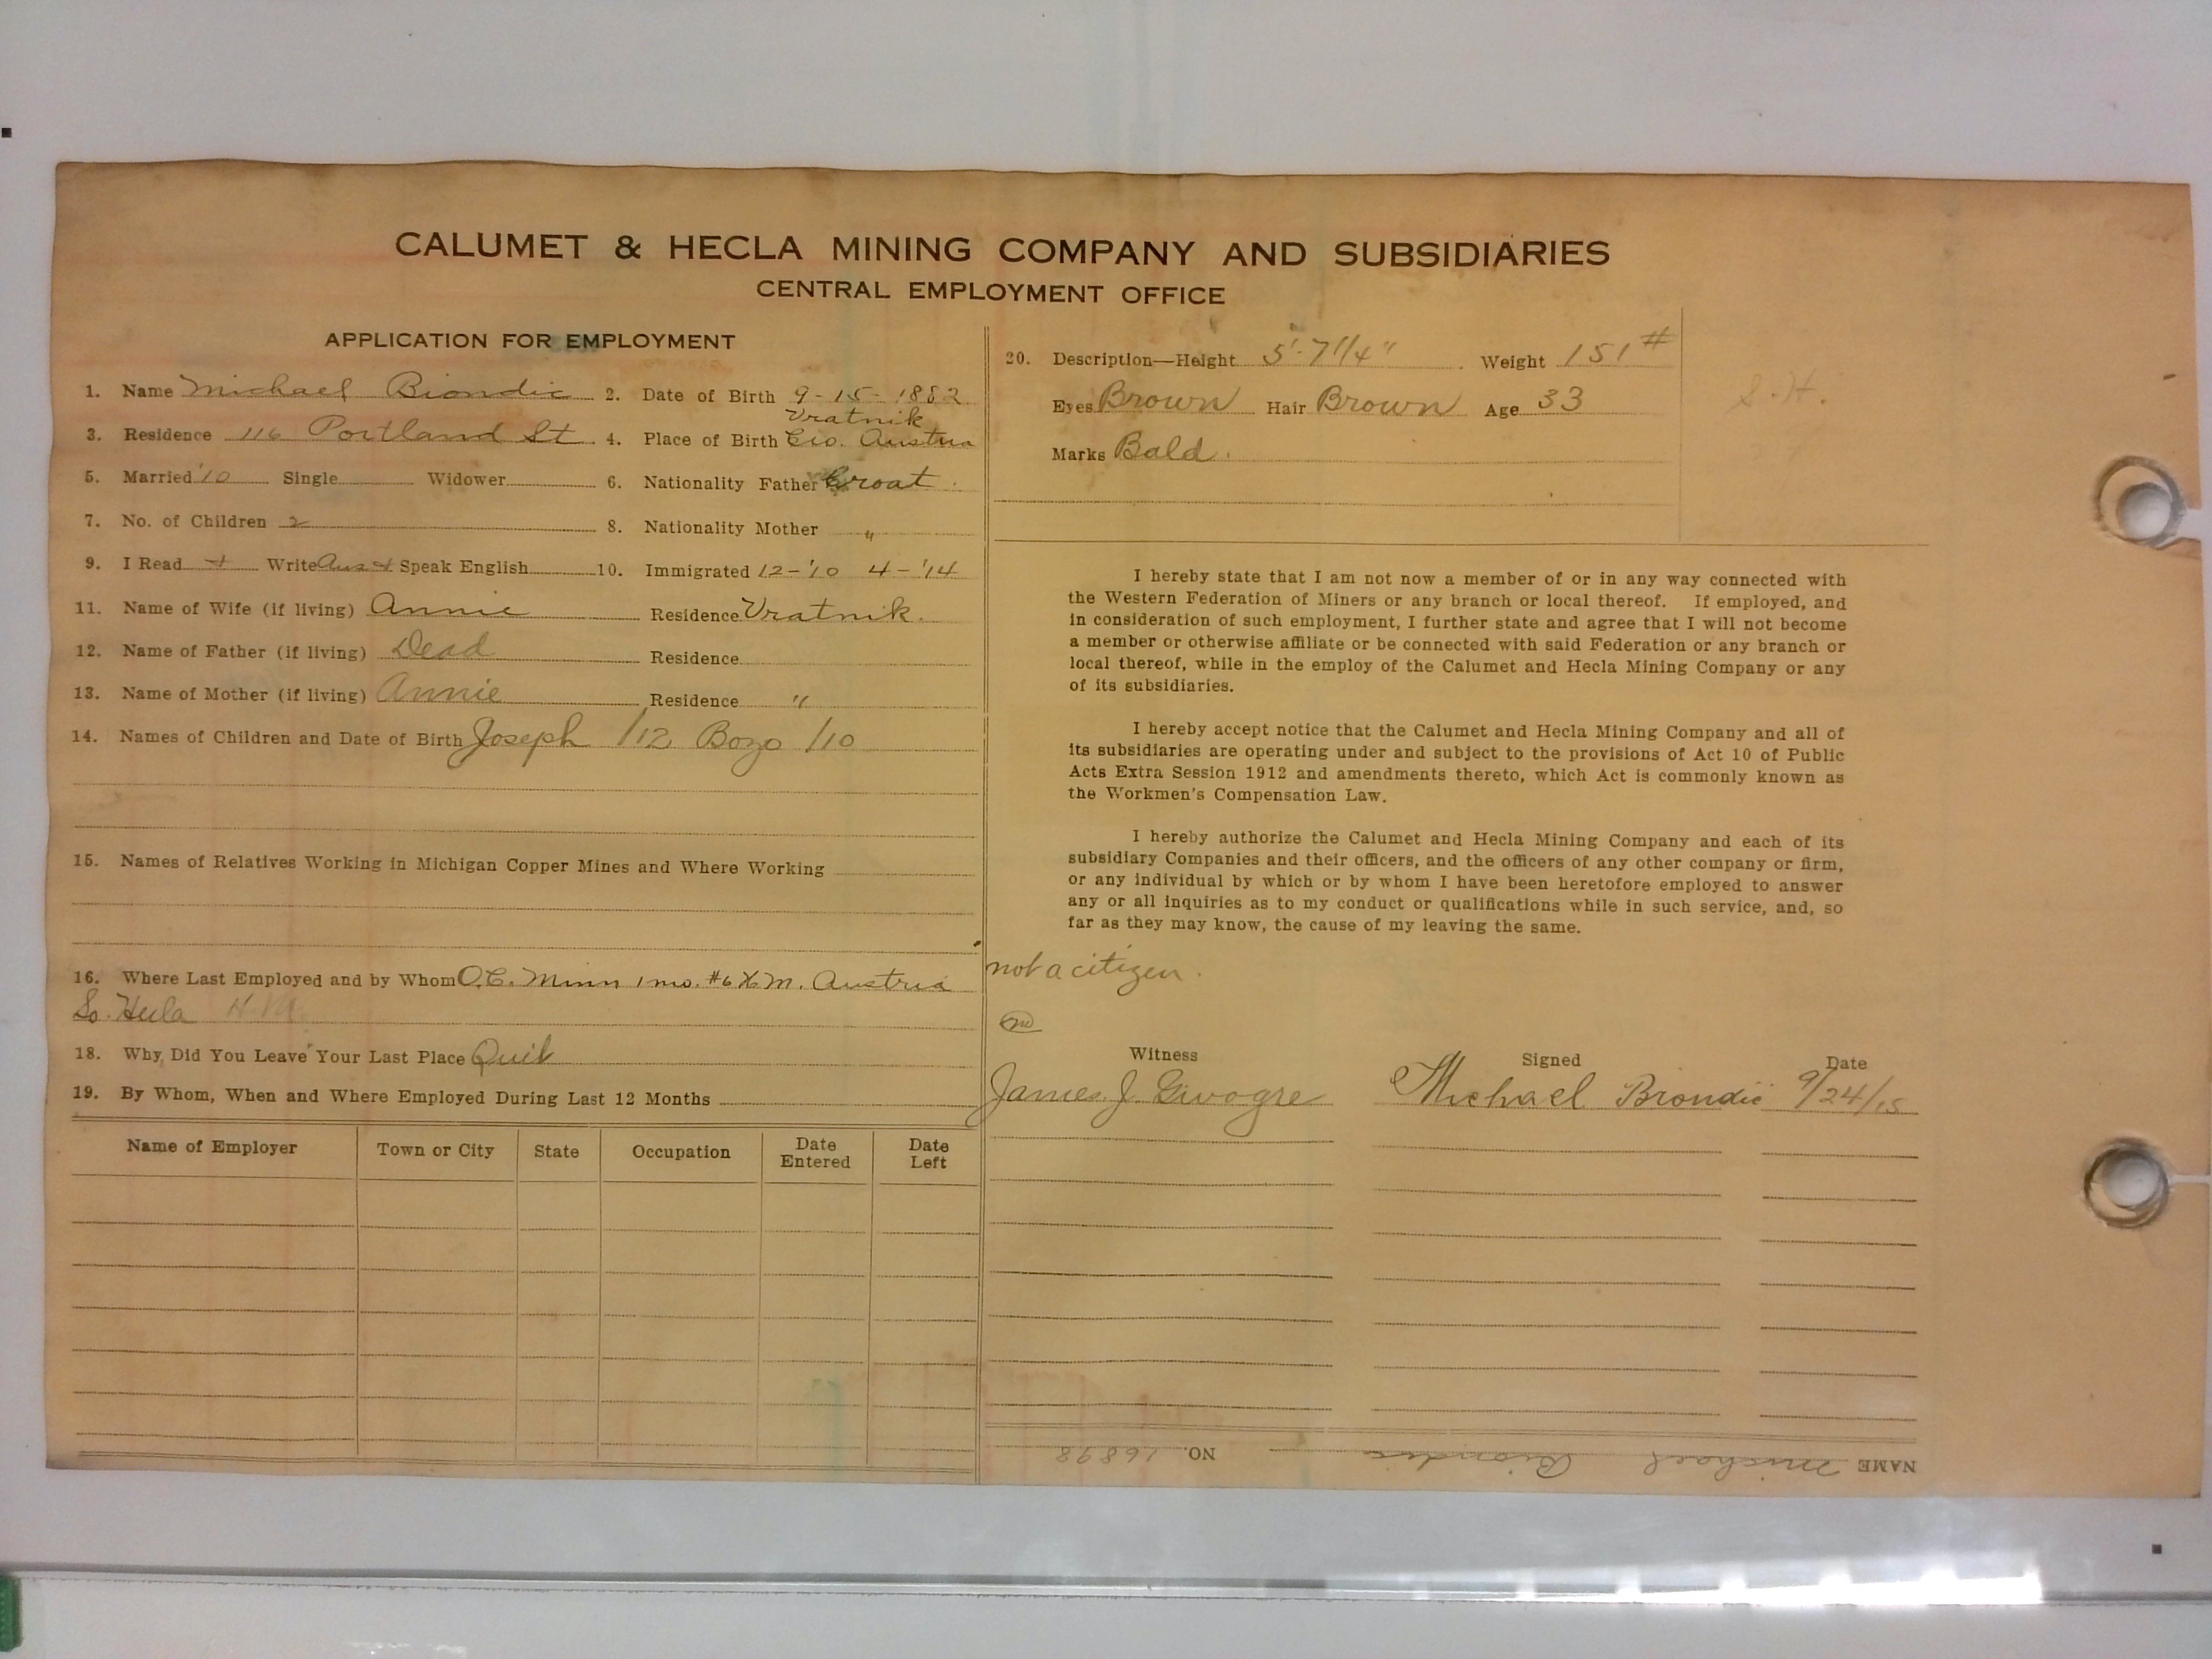 CALUMET & HECLA MINING COMPANY AND SUBSIDIARIES
CENTRAL EMPLOYMENT OFFICE
APPLICATION FOR EMPLOYMENT
1. Name Michael Biondic 2. Date of Birth 9-15-1882
Vratnik
3. Residence 116 Portland St 4. Place of Birth Cro. Austria
5. Married '10 Single Widower 6. Nationality Father Croat.
7. No. of Children 2 8. Nationality Mother "
9. I Read + Write Aus + Speak English 10. Immigrated 12-'10 4-'14
11. Name of Wife (if living) Annie Residence Vratnik.
12. Name of Father (if living) Dead Residence
13. Name of Mother (if living) Annie Residence "
14. Names of Children and Date of Birth Joseph /12 Bozo /10
15. Names of Relatives Working in Michigan Copper Mines and Where Working
16. Where Last Employed and by Whom O.C. Minn 1 mo. #6 H.M. Austria
So. Hecla H.M.
18. Why Did You Leave Your Last Place Quit
19. By Whom, When and Where Employed During Last 12 Months
Name of Employer Town or City State Occupation Date Entered Date Left
20. Description—Height 5'-7 1/4" Weight 151#
Eyes Brown Hair Brown Age 33
Marks Bald.
S.H.
I hereby state that I am not now a member of or in any way connected with
the Western Federation of Miners or any branch or local thereof. If employed, and
in consideration of such employment, I further state and agree that I will not become
a member or otherwise affiliate or be connected with said Federation or any branch or
local thereof, while in the employ of the Calumet and Hecla Mining Company or any
of its subsidiaries.
I hereby accept notice that the Calumet and Hecla Mining Company and all of
its subsidiaries are operating under and subject to the provisions of Act 10 of Public
Acts Extra Session 1912 and amendments thereto, which Act is commonly known as
the Workmen's Compensation Law.
I hereby authorize the Calumet and Hecla Mining Company and each of its
subsidiary Companies and their officers, and the officers of any other company or firm,
or any individual by which or by whom I have been heretofore employed to answer
any or all inquiries as to my conduct or qualifications while in such service, and, so
far as they may know, the cause of my leaving the same.
not a citizen.
Witness Signed Date
James J. Givogre Michael Biondic 9/24/15
NAME Michael Biondic NO. 16898